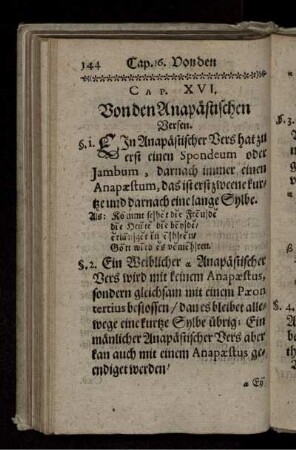 144 Cap. 16. Von den
CAP. XVI.
Von den Anapästischen
Versen.
§. 1. EIn Anapästischer Vers hat zu
erst einen Spondeum oder
Jambum, darnach immer einen
Anapæstum, das ist erst zweene kur-
tze und darnach eine lange Sylbe.
Als:
§. 2. Ein Weiblicher a Anapästischer
Vers wird mit keinem Anapæstus,
sondern gleichsam mit einem Pæon
tertius beslossen / dan es bleibet alle-
wege eine kurtze Sylbe übrig: Ein
mänlicher Anapästischer Vers aber
kan auch mit einem Anapæstus ge-
endiget werden /
§. 3.
§. 4.